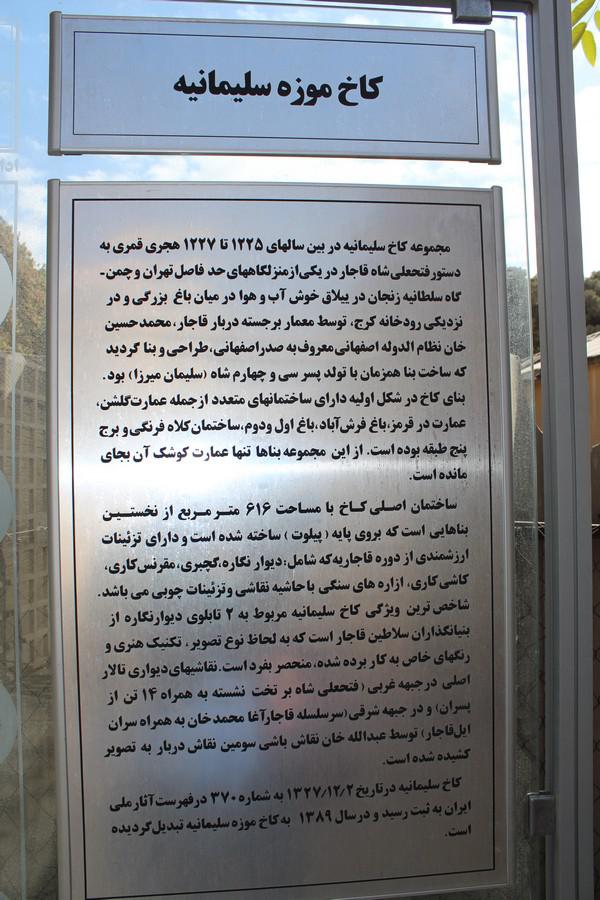 کاخ موزه سلیمانیه
مجموعه کاخ سلیمانیه در بین سالهای ۱۲۲۵ تا ۱۲۲۷ هجری قمری به
دستور فتحعلی شاه قاجار در یکی از منزلگاههای حد فاصل تهران و چمن-
گاه سلطانیه زنجان در ییلاق خوش آب و هوا در میان باغ بزرگی و در
نزدیکی رودخانه کرج، توسط معمار برجسته دربار قاجار، محمدحسین
خان نظام الدوله اصفهانی معروف به صدراصفهانی، طراحی و بنا گردید
که ساخت بنا همزمان با تولد پسر سی و چهارم شاه (سلیمان میرزا) بود.
بنای کاخ در شکل اولیه دارای ساختمانهای متعدد ازجمله عمارت گلشن،
عمارت در قرمز، باغ فرش آباد، باغ اول ودوم، ساختمان کلاه فرنگی و برج
پنج طبقه بوده است. از این مجموعه بناها تنها عمارت کوشک آن بجای
مانده است.
ساختمان اصلی کاخ با مساحت ۶۱۶ متر مربع از نخستین
بناهایی است که بروی پایه (پیلوت) ساخته شده است و دارای تزئینات
ارزشمندی از دوره قاجاریه که شامل: دیوار نگاره، گچبری، مقرنس کاری،
کاشی کاری، ازاره های سنگی با حاشیه نقاشی وتزئینات چوبی می باشد.
شاخص ترین ویژگی کاخ سلیمانیه مربوط به ۲ تابلوی دیوارنگاره از
بنیانگذاران سلاطین قاجار است که به لحاظ نوع تصویر، تکنیک هنری و
رنگهای خاص به کار برده شده، منحصر بفرد است. نقاشیهای دیواری تالار
اصلی درجبهه غربی (فتحعلی شاه بر تخت نشسته به همراه ۱۴ تن از
پسران) و در جبهه شرقی (سرسلسله قاجار آغا محمدخان به همراه سران
ایل قاجار) توسط عبدالله خان نقاش باشی سومین نقاش دربار به تصویر
کشیده شده است.
کاخ سلیمانیه درتاریخ ۱۳۲۷/۱۲/۲ به شماره ۳۷۰ درفهرست آثار ملی
ایران به ثبت رسید و درسال ۱۳۸۹ به کاخ موزه سلیمانیه تبدیل گردیده
است.